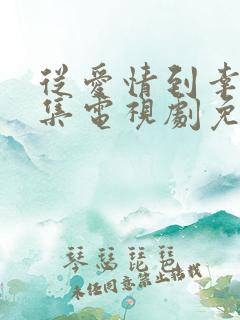 從愛情到幸
集電視劇免
琴瑟琵琶
未经同意禁止转载